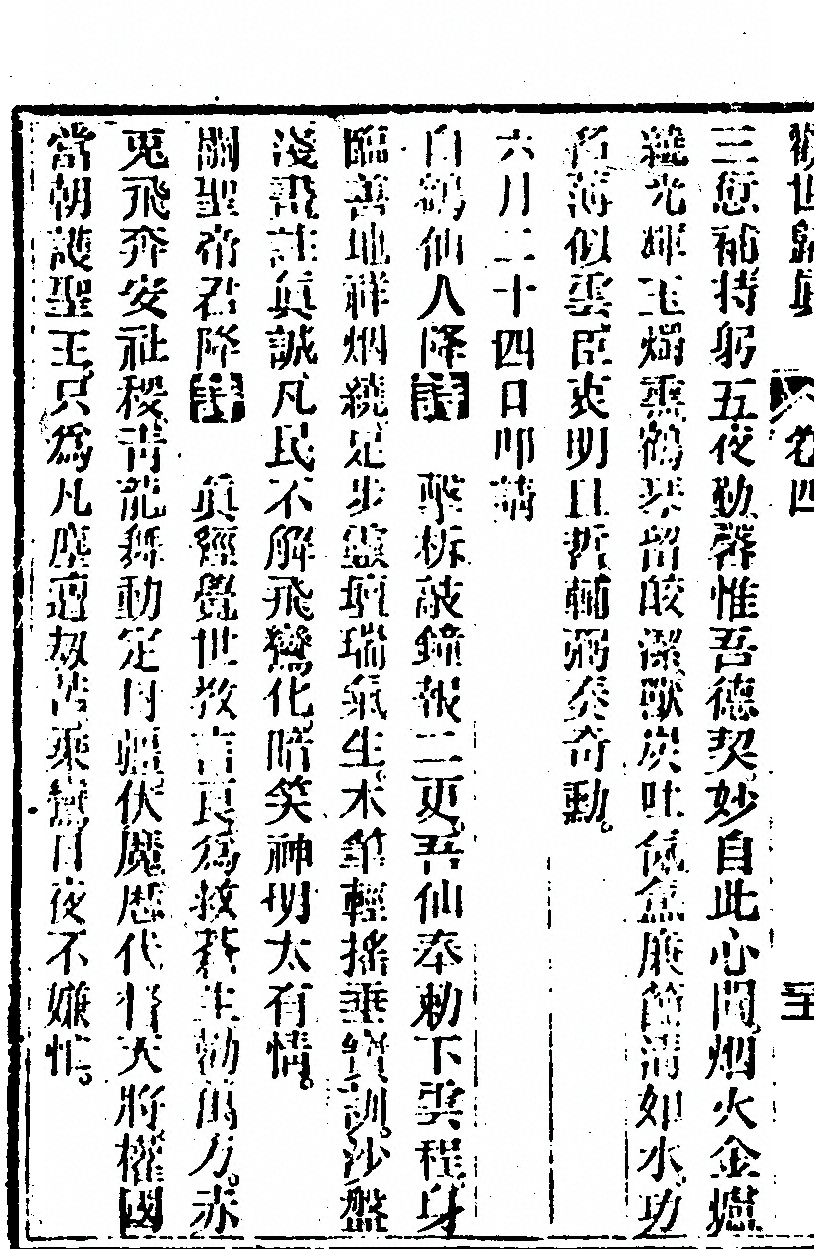 勸世歸真 卷四
三愆補持躬五夜勤罄惟吾德契妙自此心問烟火金爐
繞光輝玉燭熏鶴琴留皎潔獸炭吐氤氳廉節清如水功
名薄似雲臣衷明且哲輔弼奏奇勳。
六月二十四日叩請
白鶴仙人降詩 擊柝敲鐘報二更。吾仙奉勅下雲程。身
臨善地祥烟繞。足步靈壇瑞氣生。木筆輕搖垂寶訓。沙盤
淺畫註真誠。凡民不解飛鸞化。暗笑神明太有情。
關聖帝君降詩 真經覺世教言良。為救蒼生勅萬方。赤
兎飛奔安社稷。青龍舞動定封疆。伏魔歷代督天將。權國
當朝護聖王。只為凡塵遭刼苦。乘鸞日夜不嫌忙。